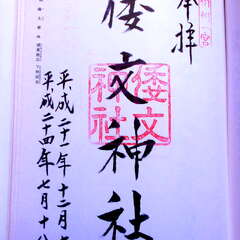 奉拝
倭文神社
倭文
神社
平成二十一年十二月
平成二十四年七月十八